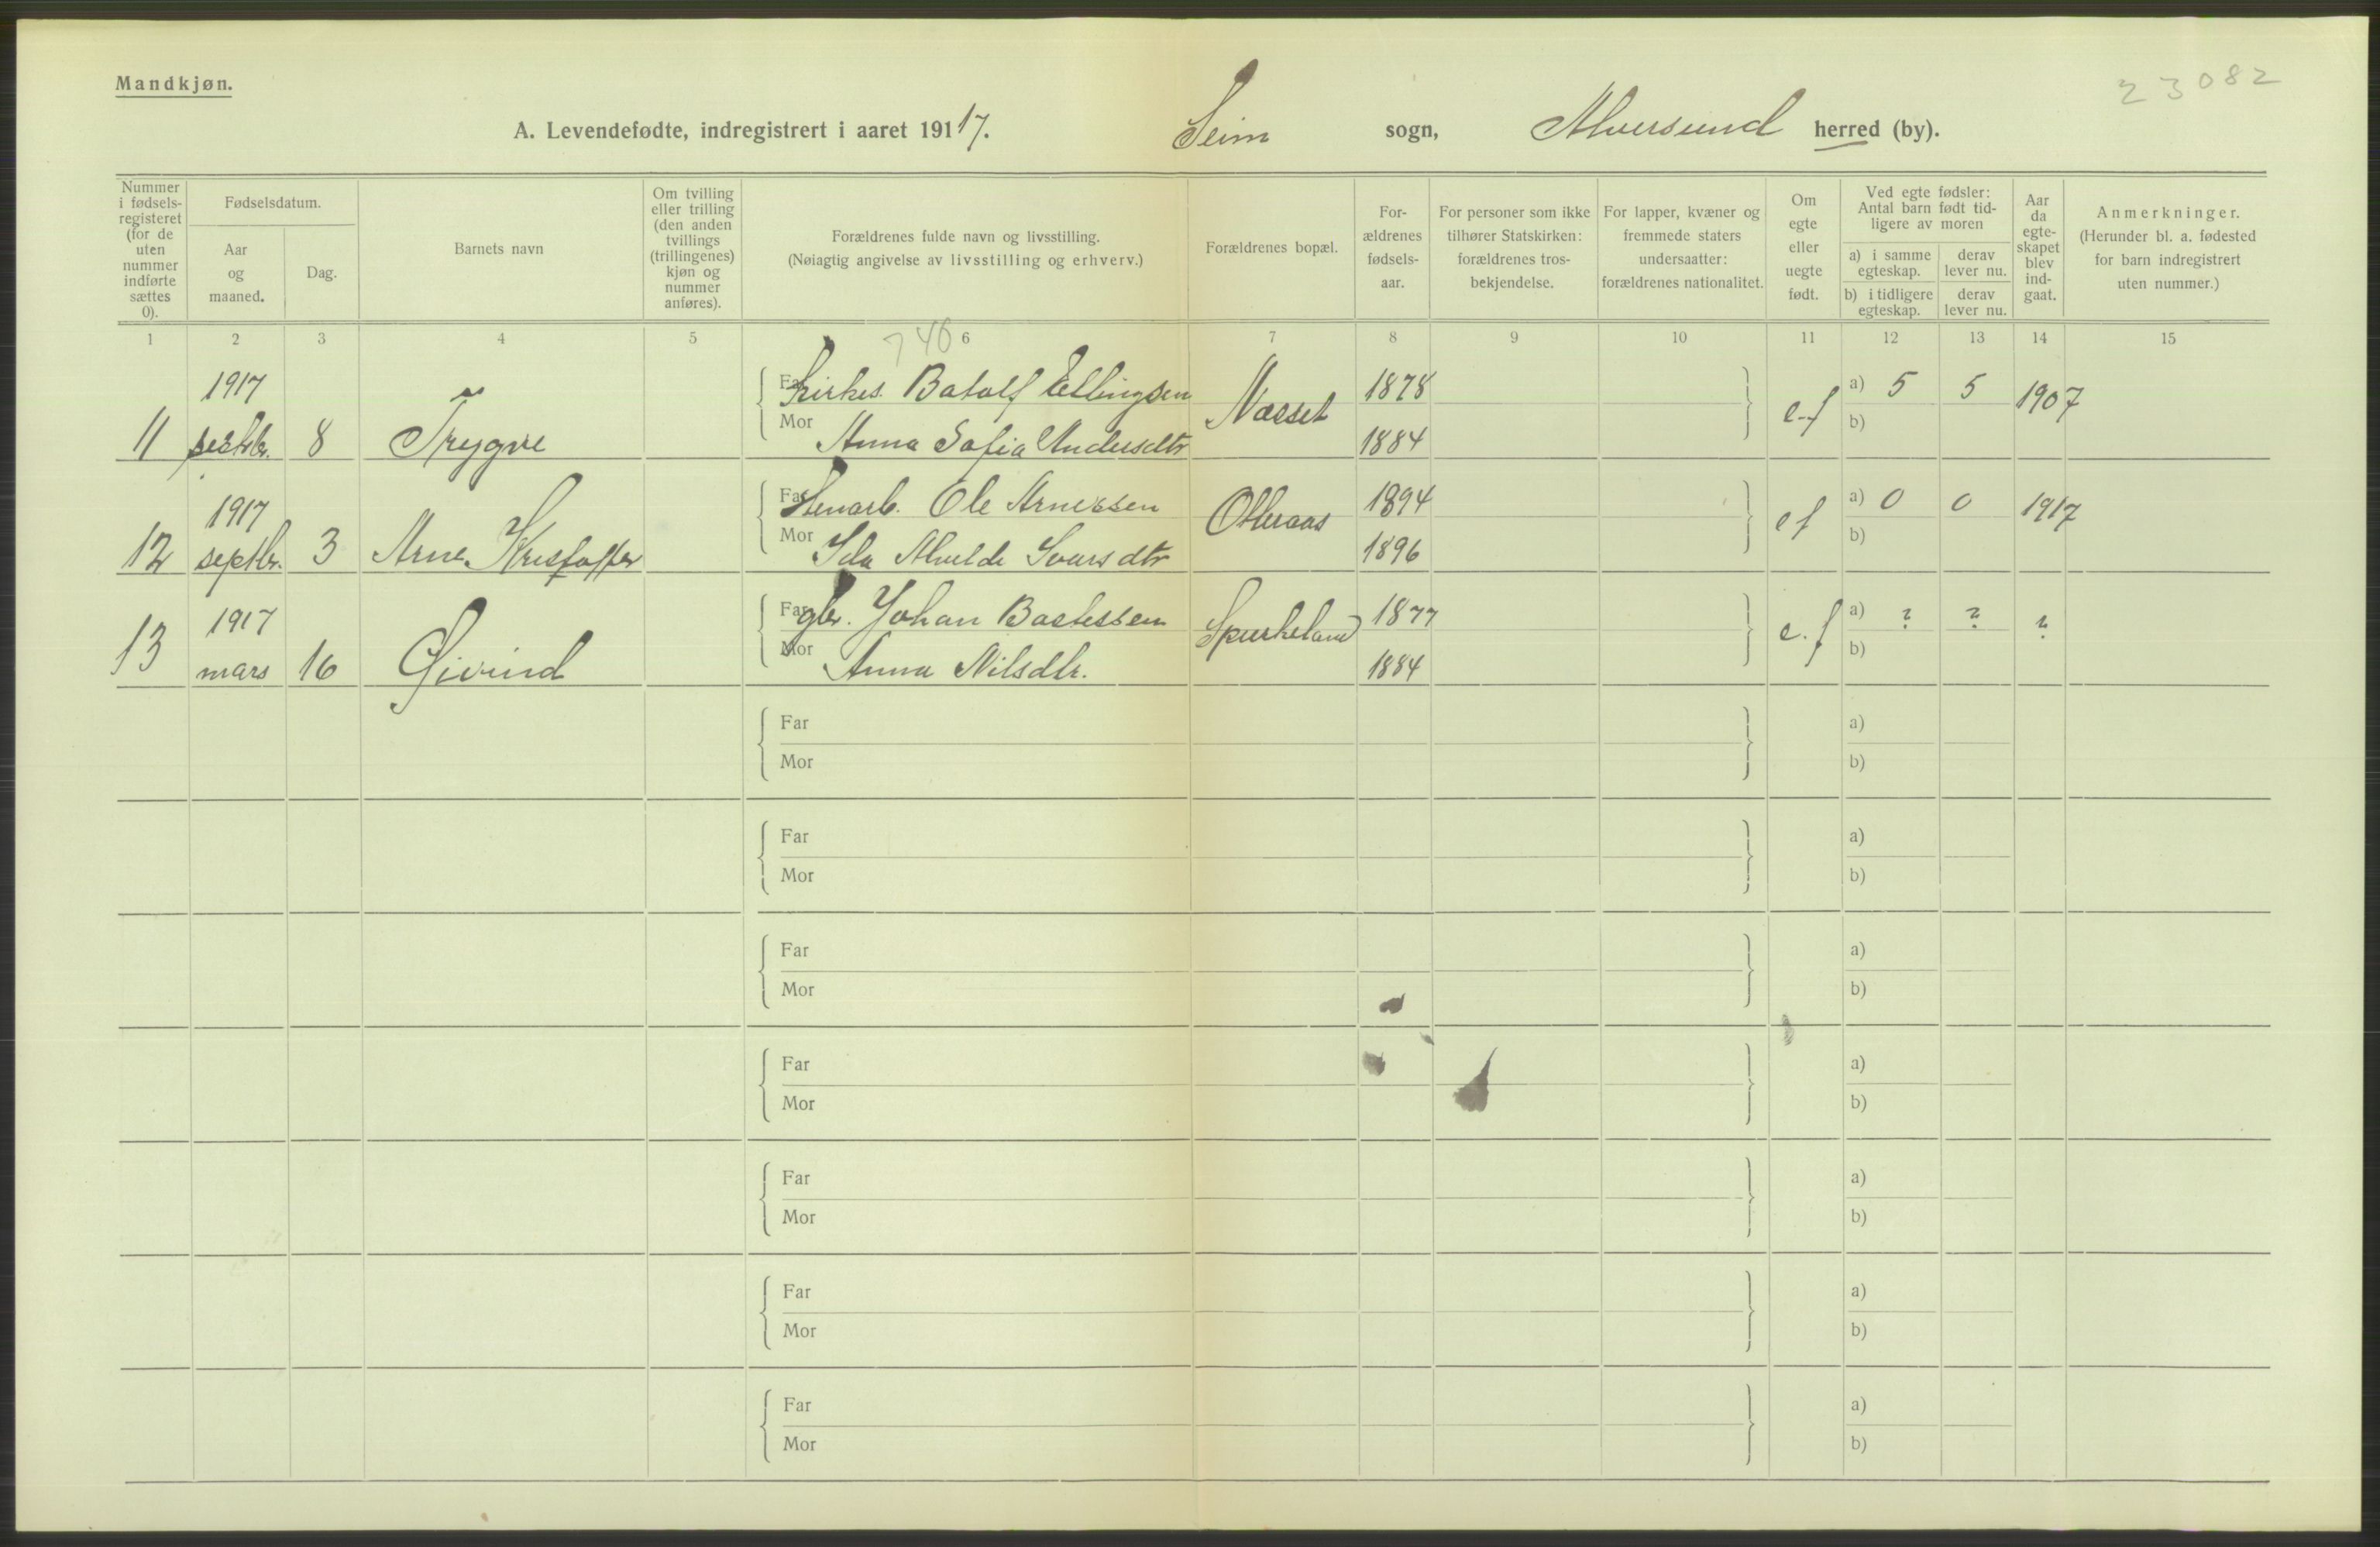 Mandkjøn.
23082
A. Levendefødte, indregistrert i aaret 1917. Seim sogn, Alversund herred (by).
Nummer i fødsels-registeret (for de uten nummer indførte sættes 0).
Fødselsdatum.
Aar og maaned.
Dag.
Barnets navn
Om tvilling eller trilling (den anden tvillings (trillingenes) kjøn og nummer anføres).
Forældrenes fulde navn og livsstilling.
(Nøiagtig angivelse av livsstilling og erhverv.)
Forældrenes bopæl.
For-ældrenes fødsels-aar.
For personer som ikke tilhører Statskirken: forældrenes tros-bekjendelse.
For lapper, kvæner og fremmede staters undersaatter: forældrenes nationalitet.
Om egte eller uegte født.
Ved egte fødsler: Antal barn født tid-ligere av moren
a) i samme egteskap.
derav lever nu.
b) i tidligere egteskap.
derav lever nu.
Aar da egte-skapet blev ind-gaat.
Anmerkninger.
(Herunder bl. a. fødested for barn indregistrert uten nummer.)
1 2 3 4 5 6 7 8 9 10 11 12 13 14 15
740
1917 Far Kirkes. Batolf Ellingsen Næsset 1878 e.f a) 5 5 1907
11 septbr. 8 Trygve Mor Anna Sofia Andersdtr 1884 b)
1917 Far Ole Arnessen Otteraas 1894 e f a) 0 0 1917
12 septbr. 3 Arne Kristoffer Mor Ida Alvilde Ivarsdtr 1896 b)
1917 Far gbr. Johan Bastessen Spurkeland 1877 e.f a) ? ? ?
13 mars 16 Øivind Mor Anna Nilsdtr. 1884 b)
Far a)
Mor b)
Far a)
Mor b)
Far a)
Mor b)
Far a)
Mor b)
Far a)
Mor b)
Far a)
Mor b)
Far a)
Mor b)